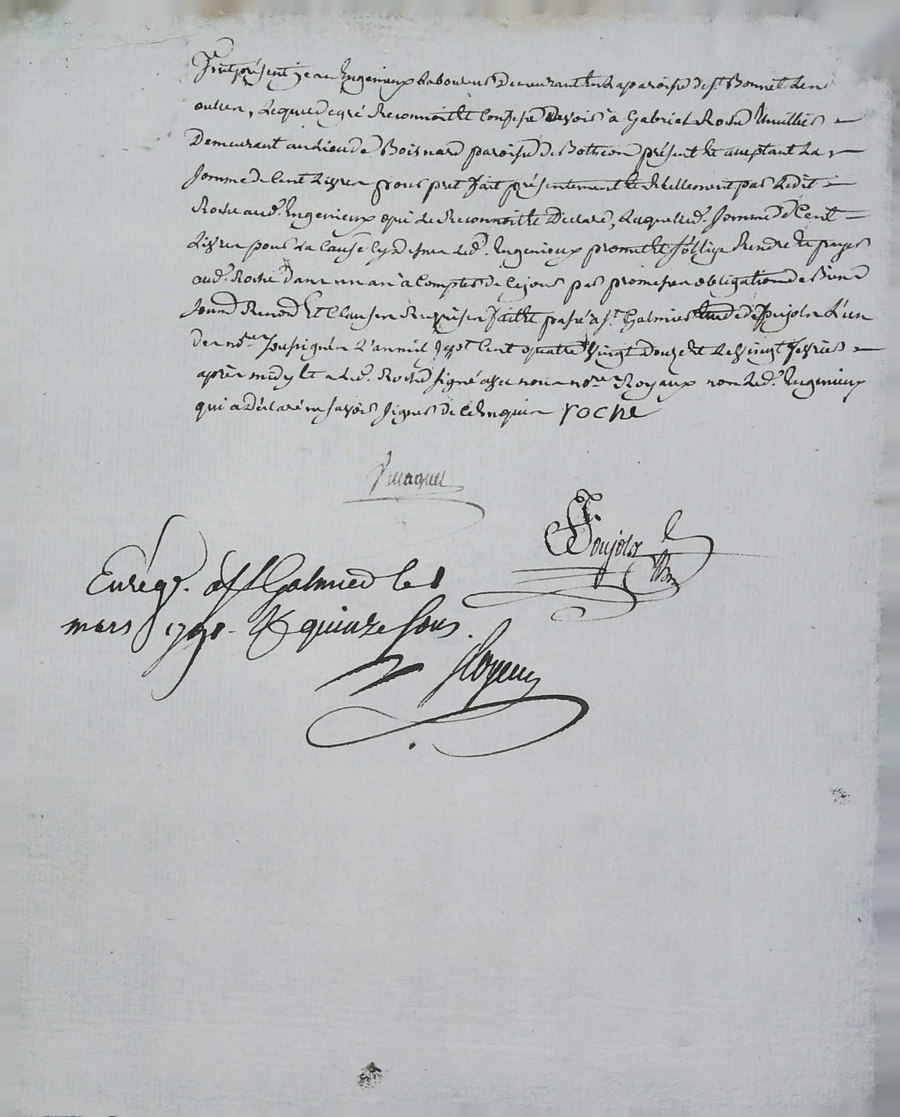 Fut présent jean Ingenieux Laboureur Demeurant en La paroisse de st. Bonnet Les
oulles, Lequel de gré Reconnoit Et Confesse devoir à Gabriel Roche
Demeurant au Lieu de Boisnard paroisse de Bothéon présent Et acceptant La
somme de Cent Livres pour pret fait présentement Et Réellement par Ledit
Roche aud. Ingenieux qui Le Reconnoit Et Declare, Laquelle d. somme de Cent
Livres pour La Cause cy Dessus Led. Ingenieux promet Et s'oblige Rendre Et payer
aud. Roche Dans un an à Compter de Ce jour par promesse obligation de Biens
soumd. Renond. Et Clauses Requises fait Et passé à st. Galmier Etude de Poujols L'un
des nres. soussignés L'an mil sept Cent quatre Vingt Douze Et Le Vingt fevrier
après midy Et a Led. Roche signé avec nous nres. Royaux non Led. Ingenieux
qui a déclaré ne savoir signer de Ce Enquis roche
Poujols
Enrégr. à st Galmier le 1
mars 179 quinze sous.